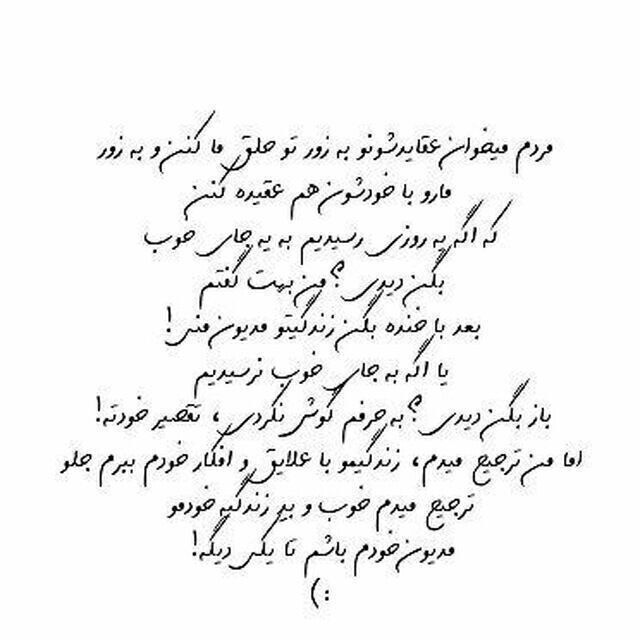 مردم میخوان عقایدشونو به زور تو حلق ما کنن و به زور
مارو با خودشون هم عقیده کنن
که اگه یه روزی رسیدیم به یه جای خوب
بگن دیدی ؟ من بهت گفتم
بعد با خنده بگن زندگیتو مدیون منی!
یا اگه به جای خوب نرسیدیم
باز بگن دیدی ؟ به حرفم گوش نکردی ، تقصیر خودته!
اما من ترجیح میدم ، زندگیمو با علایق و افکار خودم ببرم جلو
ترجیح میدم خوب و بد زندگیه خودمو
مدیون خودم باشم تا یکی دیگه!
:)